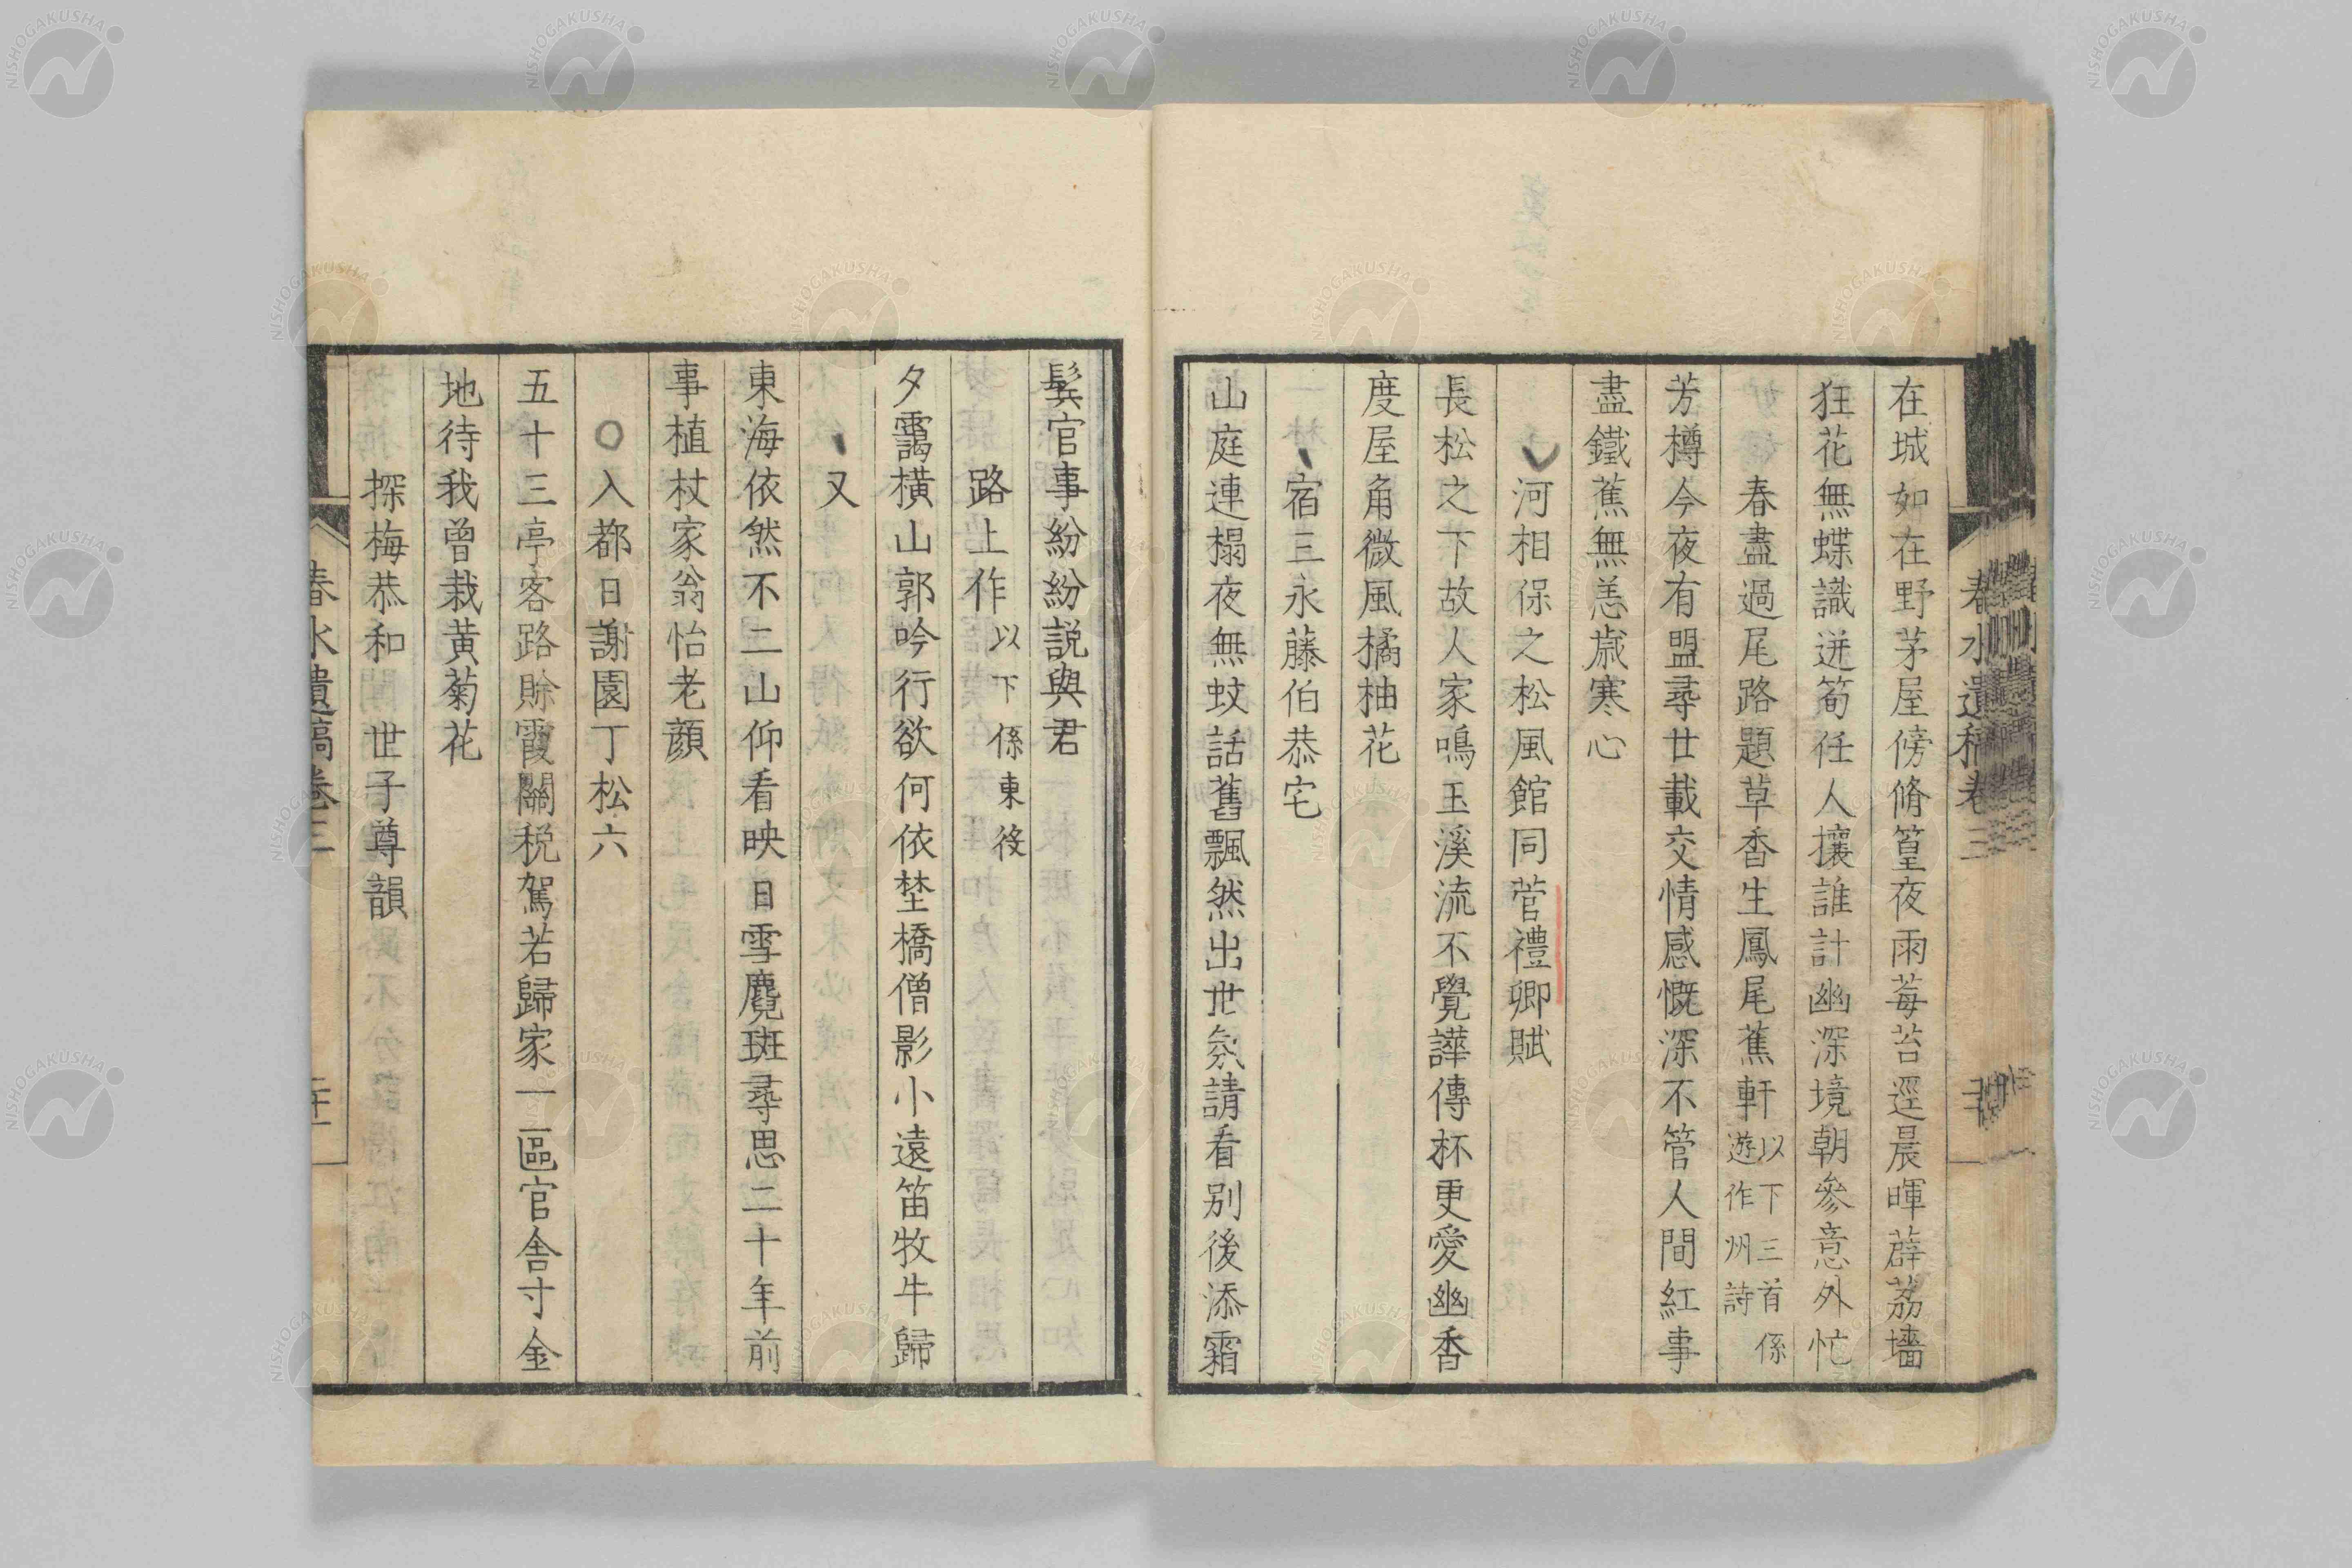 在城如在野茅屋傍脩篁夜雨莓苔逕晨暉薜荔墻
狂花無蝶識迸筍任人攘誰計幽深境朝參意外忙
春盡過尾路題草香生鳳尾蕉軒以下三首係
遊作州詩
芳樽今夜有盟尋廿載交情感慨深不管人間紅事
盡鐵蕉無恙歲寒心
河相保之松風館同菅禮卿賦
長松之下故人家鳴玉溪流不覺譁傳杯更愛幽香
度屋角微風橘柚花
宿三永藤伯恭宅
山庭連榻夜無蚊話舊飄然出世氛請看別後添霜
鬓官事紛紛説與君
路上作以下係東役
夕靄橫山郭吟行欲何依埜橋僧影小遠笛牧牛歸
又
東海依然不二山仰看映日雪麑斑尋思二十年前
事植杖家翁怡老顏
入都日謝園丁松六
五十三亭客路賒霞關税駕若歸家一區官舍寸金
地待我曾栽黃菊花
探梅恭和世子尊韻
春水遺稿卷三
NISHOGAKUSHA